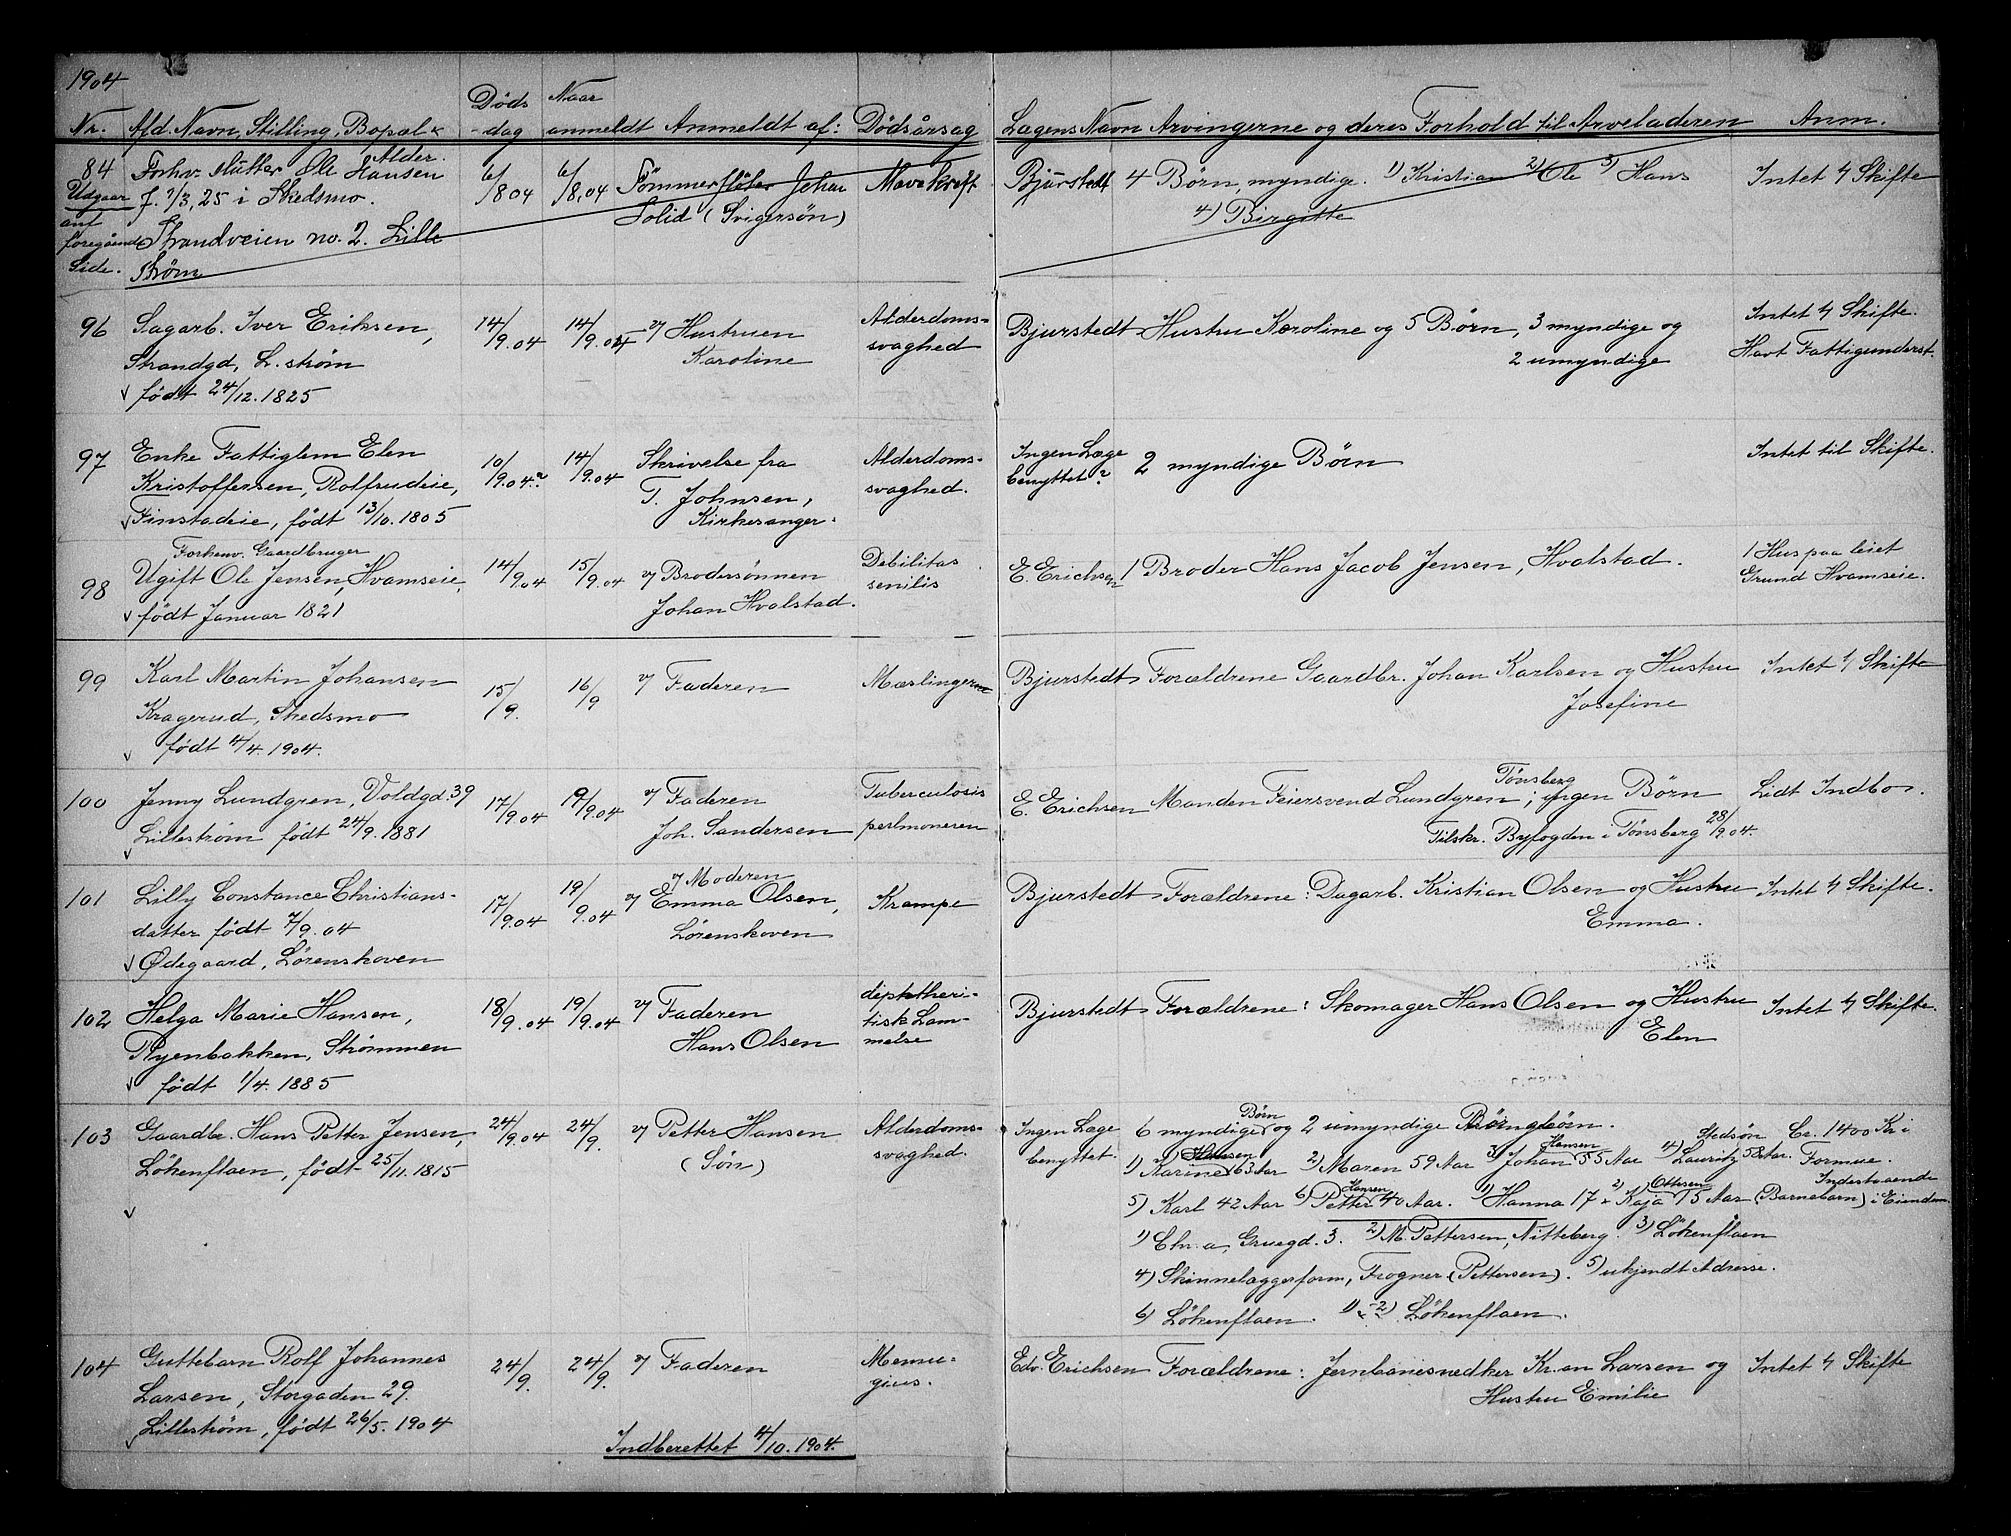 1904
Nr. Afd. Navn, Stilling, Bopæl & Alder. Døds-dag Naar anmeldt Anmeldt af: Dødsårsag Lægens Navn Arvingerne og deres Forhold til Arveladeren Anm.
84 Forhv. Ole Hansen 6/8 04 6/8,04 Tømmerfløter Johan Mavekræft Bjurstedt 4 Børn, myndige. 1) Kristian 2) Ole 3) Hans Intet t/ Skifte
Udgaar f. 7/3, 25 i Skedsmo. Solid (Svigersøn) 4) Birgitte
anf
foregående Strandveien no. 2. Lille
Side. strøm
96 Sagarb. Iver Eriksen, 14/9.04 14/9.04 v/ Hustruen Alderdoms- Bjurstedt Hustru Karoline og 5 Børn, 3 myndige og Intet t/ Skifte.
Strandgd, L. strøm Karoline svaghed 2 umyndige Havt Fattigunderst.
født 24/12. 1825
97 Enke Fattiglem Elen 10/9.04? 14/9.04 Skrivelse fra Alderdoms- Ingen Læge 2 myndige Børn Intet til Skifte.
Kristoffersen, Rolfrudeie, T. Johnsen, svaghed. benyttet?
Finstadeie, født 13/10. 1805 Kirkesanger.
Forhenv. Gaardbruger
98 Ugift Ole Jensen, Hvamseie, 14/9.04 15/9.04 v/ Brodersønnen Debilitas E. Erichsen 1 Broder Hans Jacob Jensen, Hvalstad. 1 Hus paa leiet
født Januar 1821 Johan Hvalstad. senilis Grund Hvamseie.
99 Karl Martin Johansen 15/9. 16/9 v/ Faderen Mæslingerne Bjurstedt Forældrene Gaardbr. Johan Karlsen og Hustru Intet t/ Skifte
Kragerud, Skedsmo Josefine
født 4/4. 1904.
100 Jenny Lundgren, Voldgd. 39 17/9.04 19/9.04 v/ Faderen Tuberculosis E. Erichsen Manden Feiersvend Lundgren, Tønsberg; ingen Børn Lidt Indbo.
Lillestrøm født 24/9. 1881 Joh. Sandersen perlmoneren Tilskr. Byfogden i Tønsberg 23/9.04.
v/ Moderen
101 Lilly Constance Christians- 17/9.04 19/9.04 v/ Emma Olsen, Krampe Bjurstedt Forældrene: Dagarb. Kristian Olsen og Hustru Intet t/ Skifte.
datter født 7/9.04 Lørenskoven Emma.
Ødegaard, Lørenskoven
102 Helga Marie Hansen, 18/9.04 19/9.04 v/ Faderen diphtheri- Bjurstedt Forældrene: Skomager Hans Olsen og Hustru Intet t/ Skifte.
Ryenbakken, Strømmen Hans Olsen tisk Lam- Elen
født 1/4. 1885 melse
103 Gaardbr. Hans Petter Jensen, 24/9.04 24/9. v/ Petter Hansen Alderdoms- Ingen Læge 6 myndige Børn og 2 umyndige Børnebørn. Cr. 1400 Kr i
Løkenflaen, født 25/11. 1815 (Søn) svaghed. benyttet. 1) Karine Hansen 63 Aar 2) Maren 59 Aar 3) Johan Hansen 55 Aar 4) Lauritz Stedsøn 58 Aar. Formue.
5) Karl 42 Aar 6) Petter Hansen 40 Aar. 1) Hanna 17 & 2) Kaja Ottesen 15 Aar (Barnebarn) Indestaaende i Eiendom.
1) Chr.a, Gruegd. 3. 2) M. Pettersen, Nitteberg. 3) Løkenflaen
4) Skinnelæggerform, Frogner (Pettersen). 5) ukjendt Adresse.
6) Løkenflaen. 1) & 2) Løkenflaen.
104 Guttebarn Rolf Johannes 24/9. 24/9. v/ Faderen Menin- Edv. Erichsen Forældrene: Jernbanesnedker Kr.an Larsen og Intet t/ Skifte
Larsen, Storgaden 29. gius. Hustru Emilie
Lillestrøm, født 26/5. 1904
Indberettet 4/10. 1904.